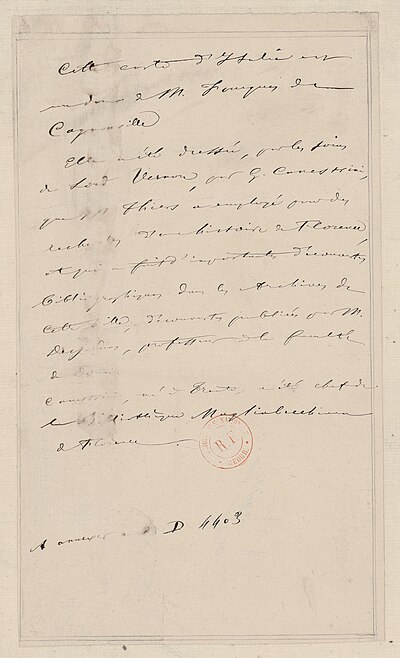 Cette carte d'Italie est
un don de M. Fouques de
Cagnonville
Elle a été dressée, par les soins
de Lord Vernon, par G. Canestrini,
que M. Thiers a employé pour des
recherches d'une histoire de Florence,
et qui a fait d'importantes découvertes
bibliographiques dans les Archives de
cette ville, découvertes publiées par M.
Desjardins, professeur à la faculté
de
Canestrini, né à Trente a été chef de
la Bibliothèque Magliabecchiana
de Florence
R.F.
GÉOGR.
A annexer D 4403